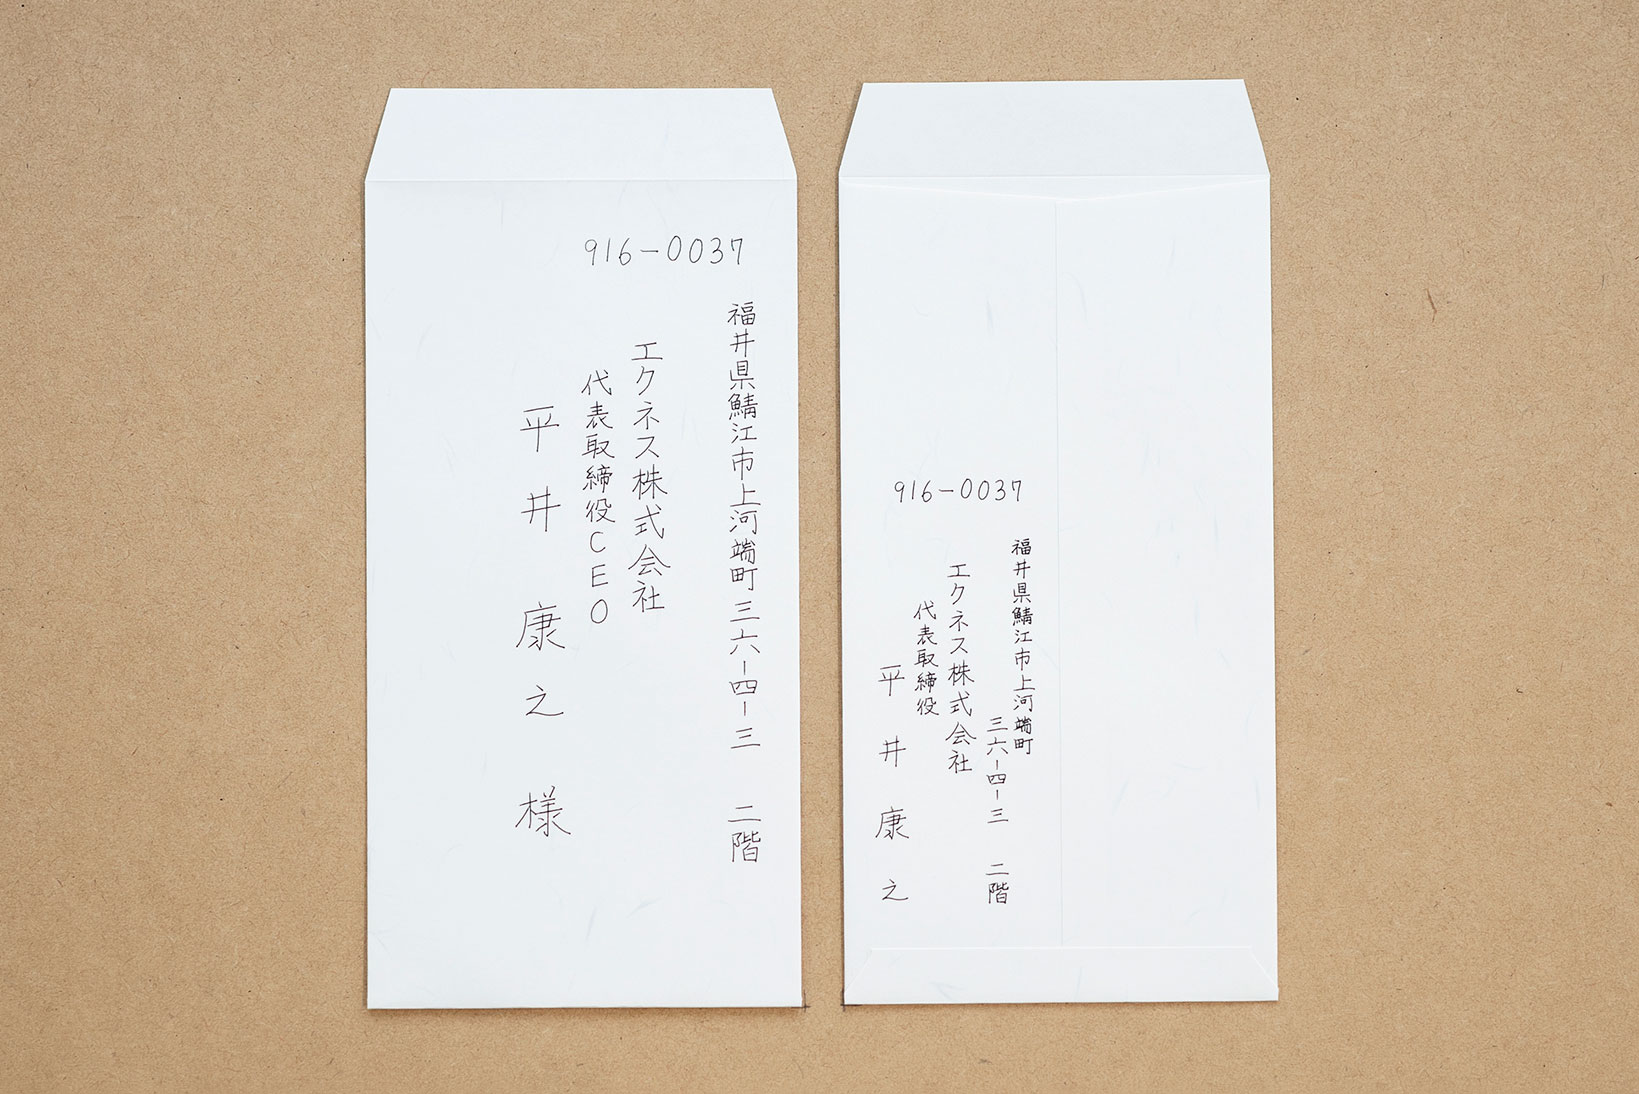 916-0037
福井県鯖江市上河端町三六-四-三　二階
エクネス株式会社
代表取締役CEO
平井康之様
916-0037
福井県鯖江市上河端町
三六-四-三　二階
エクネス株式会社
代表取締役
平井康之